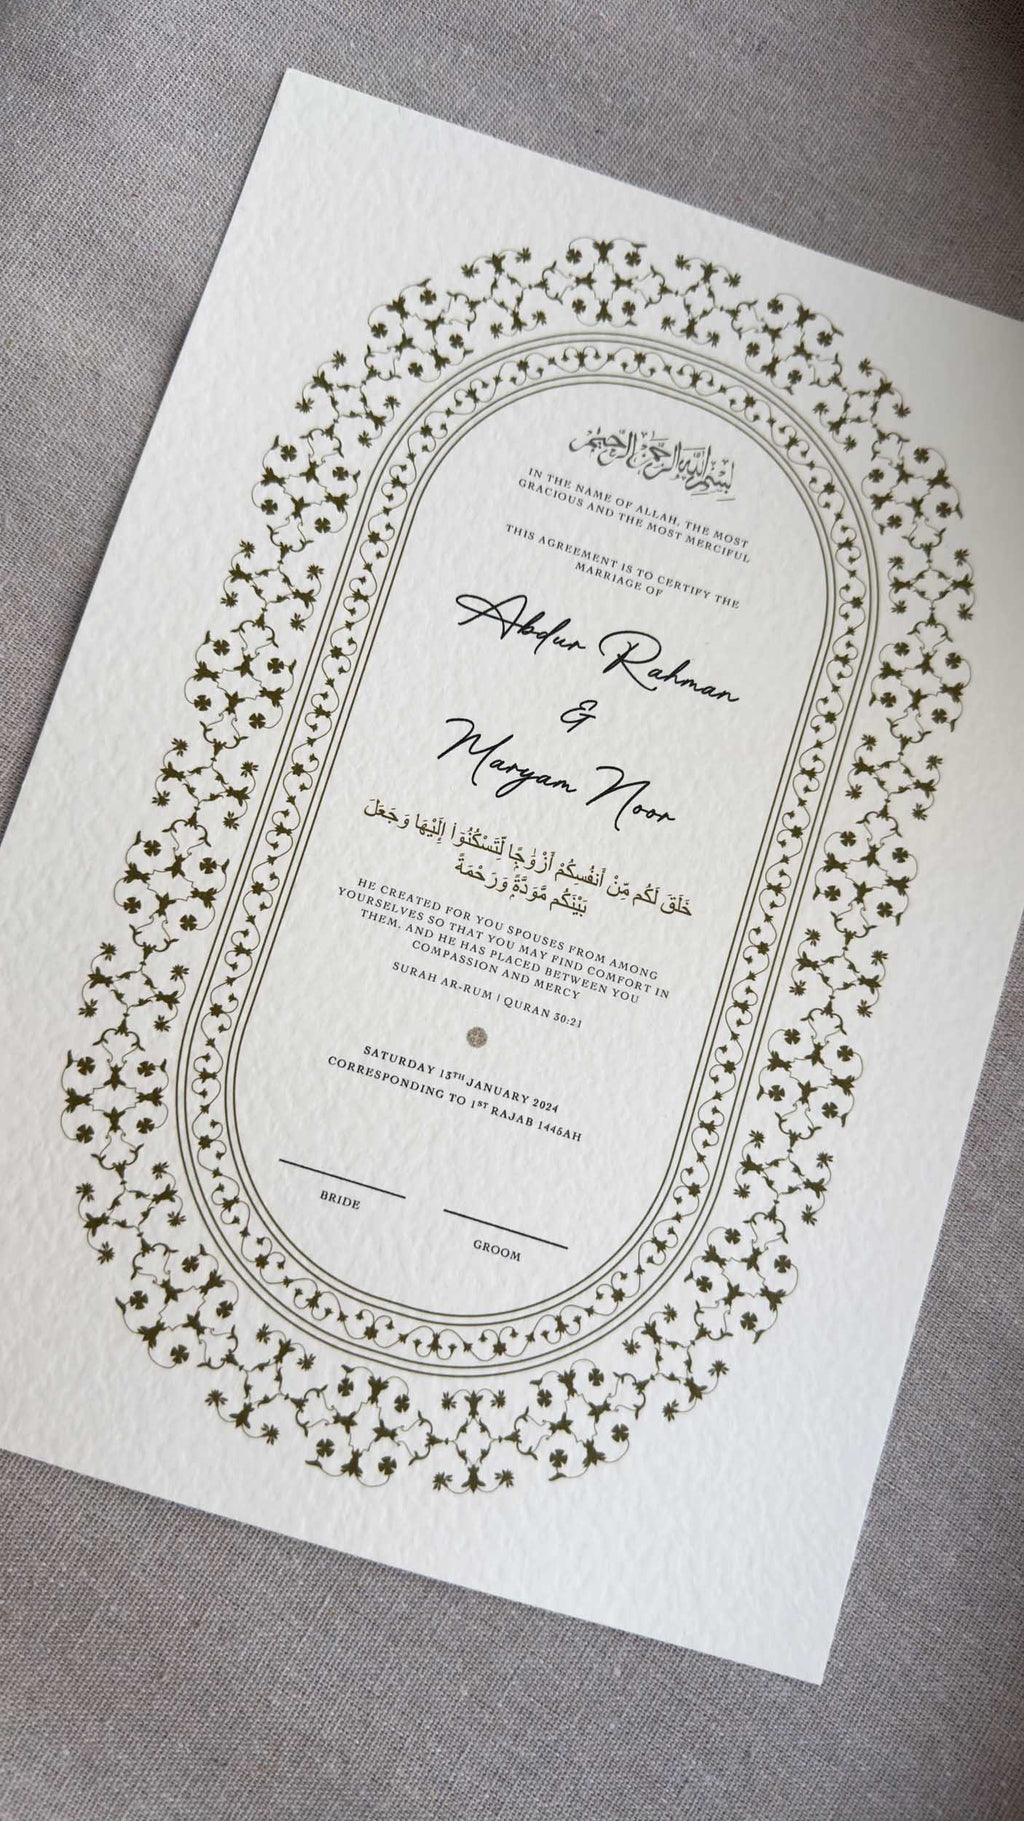 بِسْمِ اللَّهِ الرَّحْمَٰنِ الرَّحِيمِ
IN THE NAME OF ALLAH, THE MOST
GRACIOUS AND THE MOST MERCIFUL
THIS AGREEMENT IS TO CERTIFY THE
MARRIAGE OF
Abdur Rahman
&
Maryam Noor
خَلَقَ لَكُم مِّنْ أَنفُسِكُمْ أَزْوَٰجًا لِّتَسْكُنُوٓا۟ إِلَيْهَا وَجَعَلَ
بَيْنَكُم مَّوَدَّةً وَرَحْمَةً
HE CREATED FOR YOU SPOUSES FROM AMONG
YOURSELVES SO THAT YOU MAY FIND COMFORT IN
THEM. AND HE HAS PLACED BETWEEN YOU
COMPASSION AND MERCY
SURAH AR-RUM | QURAN 30:21
SATURDAY 13TH JANUARY 2024
CORRESPONDING TO 1ST RAJAB 1445AH
BRIDE
GROOM